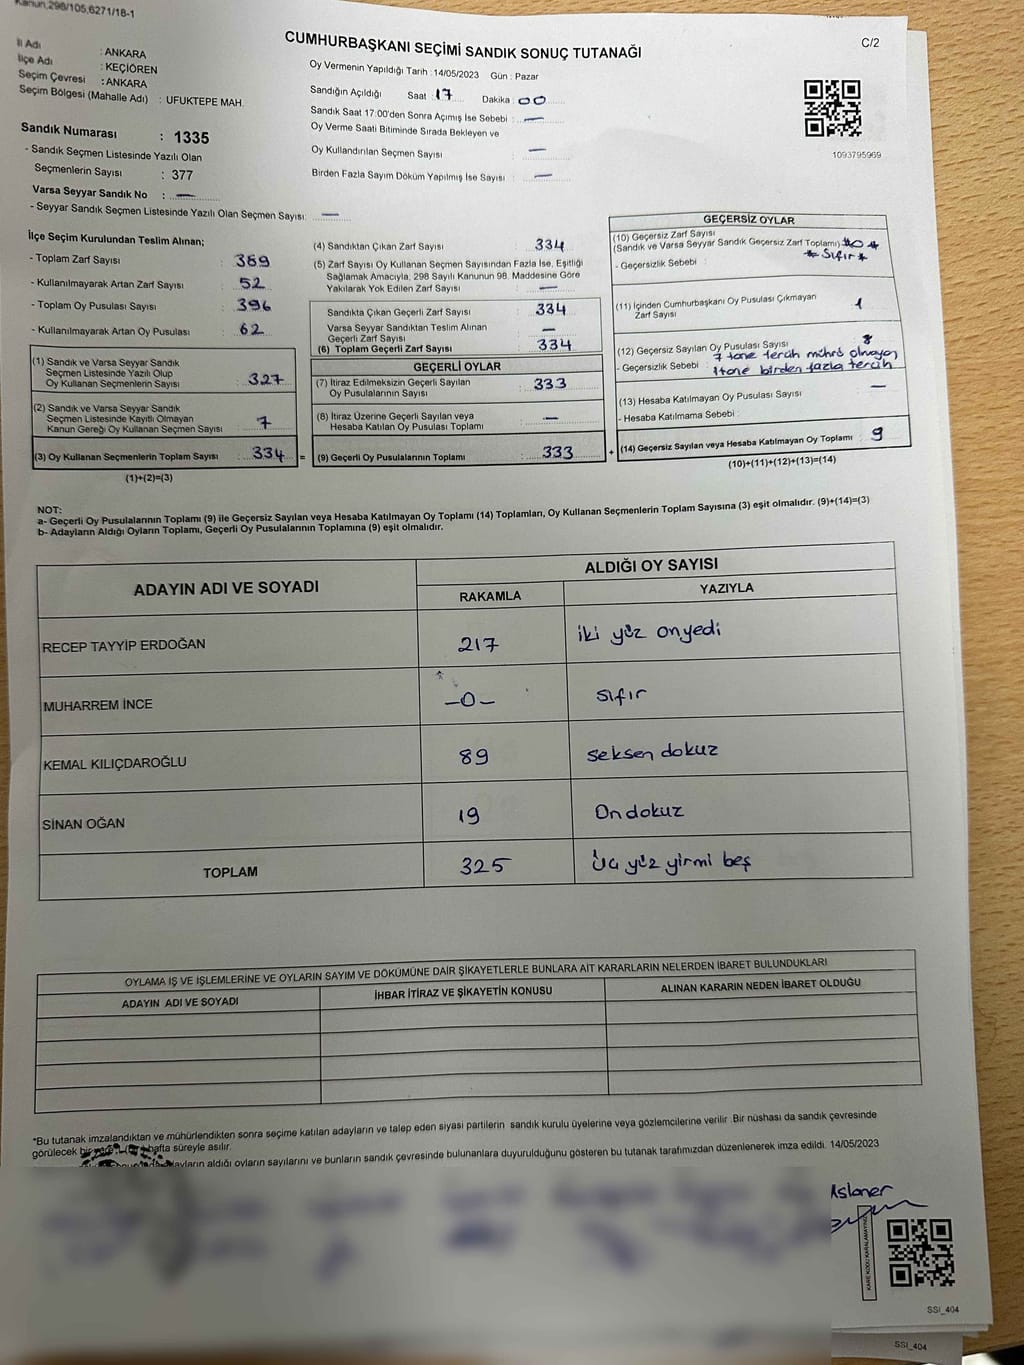 Kanun;298/105;6271/18-1
C/2
CUMHURBAŞKANI SEÇİMİ SANDIK SONUÇ TUTANAĞI
İl Adı : ANKARA
İlçe Adı : KEÇİÖREN
Seçim Çevresi : ANKARA
Seçim Bölgesi (Mahalle Adı) : UFUKTEPE MAH.
Sandık Numarası : 1335
- Sandık Seçmen Listesinde Yazılı Olan
Seçmenlerin Sayısı : 377
Varsa Seyyar Sandık No : —
- Seyyar Sandık Seçmen Listesinde Yazılı Olan Seçmen Sayısı: —
Oy Vermenin Yapıldığı Tarih :14/05/2023 Gün : Pazar
Sandığın Açıldığı Saat : 17 Dakika : 00
Sandık Saat 17:00'den Sonra Açımış İse Sebebi : —
Oy Verme Saati Bitiminde Sırada Bekleyen ve
Oy Kullandırılan Seçmen Sayısı : —
Birden Fazla Sayım Döküm Yapılmış İse Sayısı : —
1093795969
İlçe Seçim Kurulundan Teslim Alınan;
- Toplam Zarf Sayısı : 389
- Kullanılmayarak Artan Zarf Sayısı : 52
- Toplam Oy Pusulası Sayısı : 396
- Kullanılmayarak Artan Oy Pusulası : 62
(1) Sandık ve Varsa Seyyar Sandık
Seçmen Listesinde Yazılı Olup
Oy Kullanan Seçmenlerin Sayısı : 327
(2) Sandık ve Varsa Seyyar Sandık
Seçmen Listesinde Kayıtlı Olmayan
Kanun Gereği Oy Kullanan Seçmen Sayısı : 7
(3) Oy Kullanan Seçmenlerin Toplam Sayısı : 334 =
(1)+(2)=(3)
(4) Sandıktan Çıkan Zarf Sayısı : 334
(5) Zarf Sayısı Oy Kullanan Seçmen Sayısından Fazla İse, Eşitliği
Sağlamak Amacıyla, 298 Sayılı Kanunun 98. Maddesine Göre
Yakılarak Yok Edilen Zarf Sayısı : —
Sandıkta Çıkan Geçerli Zarf Sayısı : 334
Varsa Seyyar Sandıktan Teslim Alınan
Geçerli Zarf Sayısı : —
(6) Toplam Geçerli Zarf Sayısı : 334
GEÇERLİ OYLAR
(7) İtiraz Edilmeksizin Geçerli Sayılan
Oy Pusulalarının Sayısı : 333
(8) İtiraz Üzerine Geçerli Sayılan veya
Hesaba Katılan Oy Pusulası Toplamı : —
(9) Geçerli Oy Pusulalarının Toplamı : 333 +
GEÇERSİZ OYLAR
(10) Geçersiz Zarf Sayısı
(Sandık ve Varsa Seyyar Sandık Geçersiz Zarf Toplamı) * 0 *
* Sıfır *
- Geçersizlik Sebebi :
(11) İçinden Cumhurbaşkanı Oy Pusulası Çıkmayan
Zarf Sayısı : 1
(12) Geçersiz Sayılan Oy Pusulası Sayısı : 8
- Geçersizlik Sebebi : 7 tane tercih mührü olmayan
1 tane birden fazla tercih
(13) Hesaba Katılmayan Oy Pusulası Sayısı : —
- Hesaba Katılmama Sebebi :
(14) Geçersiz Sayılan veya Hesaba Katılmayan Oy Toplamı : 9
(10)+(11)+(12)+(13)=(14)
NOT:
a- Geçerli Oy Pusulalarının Toplamı (9) ile Geçersiz Sayılan veya Hesaba Katılmayan Oy Toplamı (14) Toplamları, Oy Kullanan Seçmenlerin Toplam Sayısına (3) eşit olmalıdır. (9)+(14)=(3)
b- Adayların Aldığı Oyların Toplamı, Geçerli Oy Pusulalarının Toplamına (9) eşit olmalıdır.
ADAYIN ADI VE SOYADI
ALDIĞI OY SAYISI
RAKAMLA YAZIYLA
RECEP TAYYİP ERDOĞAN 217 iki yüz onyedi
MUHARREM İNCE —0— sıfır
KEMAL KILIÇDAROĞLU 89 seksen dokuz
SİNAN OĞAN 19 On dokuz
TOPLAM 325 Üç yüz yirmi beş
OYLAMA İŞ VE İŞLEMLERİNE VE OYLARIN SAYIM VE DÖKÜMÜNE DAİR ŞİKAYETLERLE BUNLARA AİT KARARLARIN NELERDEN İBARET BULUNDUKLARI
ADAYIN ADI VE SOYADI İHBAR İTİRAZ VE ŞİKAYETİN KONUSU ALINAN KARARIN NEDEN İBARET OLDUĞU
*Bu tutanak imzalandıktan ve mühürlendikten sonra seçime katılan adayların ve talep eden siyasi partilerin sandık kurulu üyelerine veya gözlemcilerine verilir. Bir nüshası da sandık çevresinde
görülecek bir hafta süreyle asılır.
aldığı oyların sayılarını ve bunların sandık çevresinde bulunanlara duyurulduğunu gösteren bu tutanak tarafımızdan düzenlenerek imza edildi. 14/05/2023
KARE KODU KARALAMAYINIZ
SSI_404
SSI_404